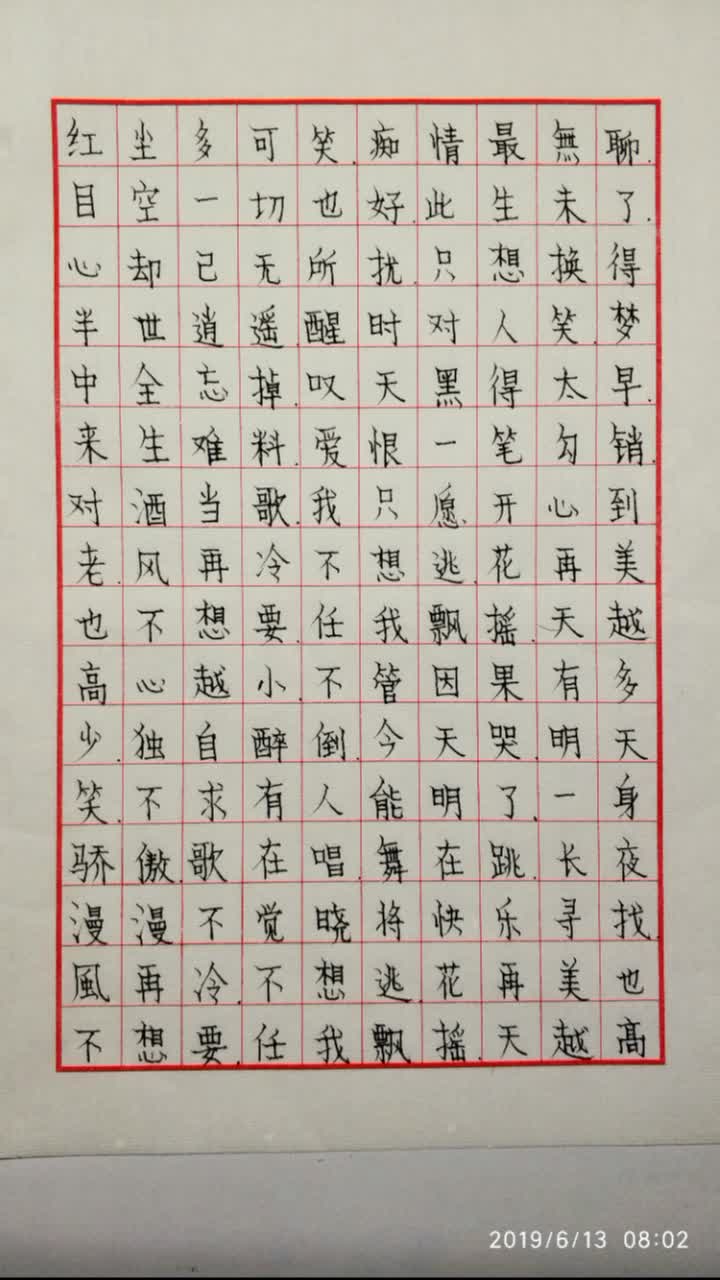 红尘多可笑.痴情最無聊.
目空一切也好.此生未了.
心却已无所扰.只想换得
半世逍遥.醒时对人笑.梦
中全忘掉.叹天黑得太早.
来生难料.爱恨一笔勾销.
对酒当歌.我只愿开心到
老.风再冷不想逃.花再美
也不想要.任我飘摇.天越
高心越小.不管因果有多
少.独自醉倒.今天哭.明天
笑.不求有人能明了.一身
骄傲.歌在唱.舞在跳.长夜
漫漫不觉晓.将快乐寻找.
風再冷.不想逃.花再美也
不想要.任我飘摇.天越高
2019/6/13 08:02